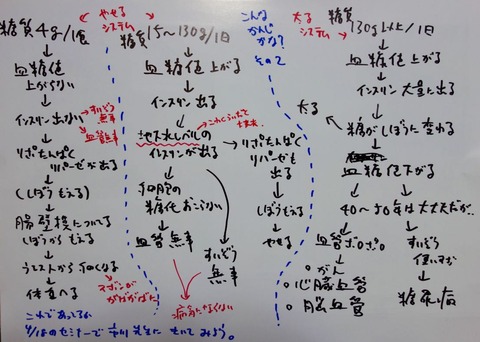 やせる
システム
糖質4g/1食
血糖値
上がらない
インスリン出ない
すいぞう
無事
血管無事
りぽたんぱく
リパーゼが出る
(しぼうもえる)
腸壁
しぼうからもえる
ウエストから細くなる
ズボンが
体重へる
糖質15〜130g/1日
血糖値上がる
インスリン出る
インスリンが出る
細胞の
糖化おこらない
血管無事
すいぞう
無事
病気にならない
りぽたんぱく
リパーゼも
出る
しぼうもえる
やせる
こんな
かんじ
かな?
その2
太る
システム
糖質
130g以上/1日
血糖値上がる
インスリン大量に出る
糖がしぼうに変わる
太る
血糖値下がる
40〜50年は大丈夫だが..
血管ボロボロ
がん
心臓血管
脳血管
すいぞう
使いすぎ
糖尿病
これであってるか
4/18のセミナーで
先生に
きいてみよう。